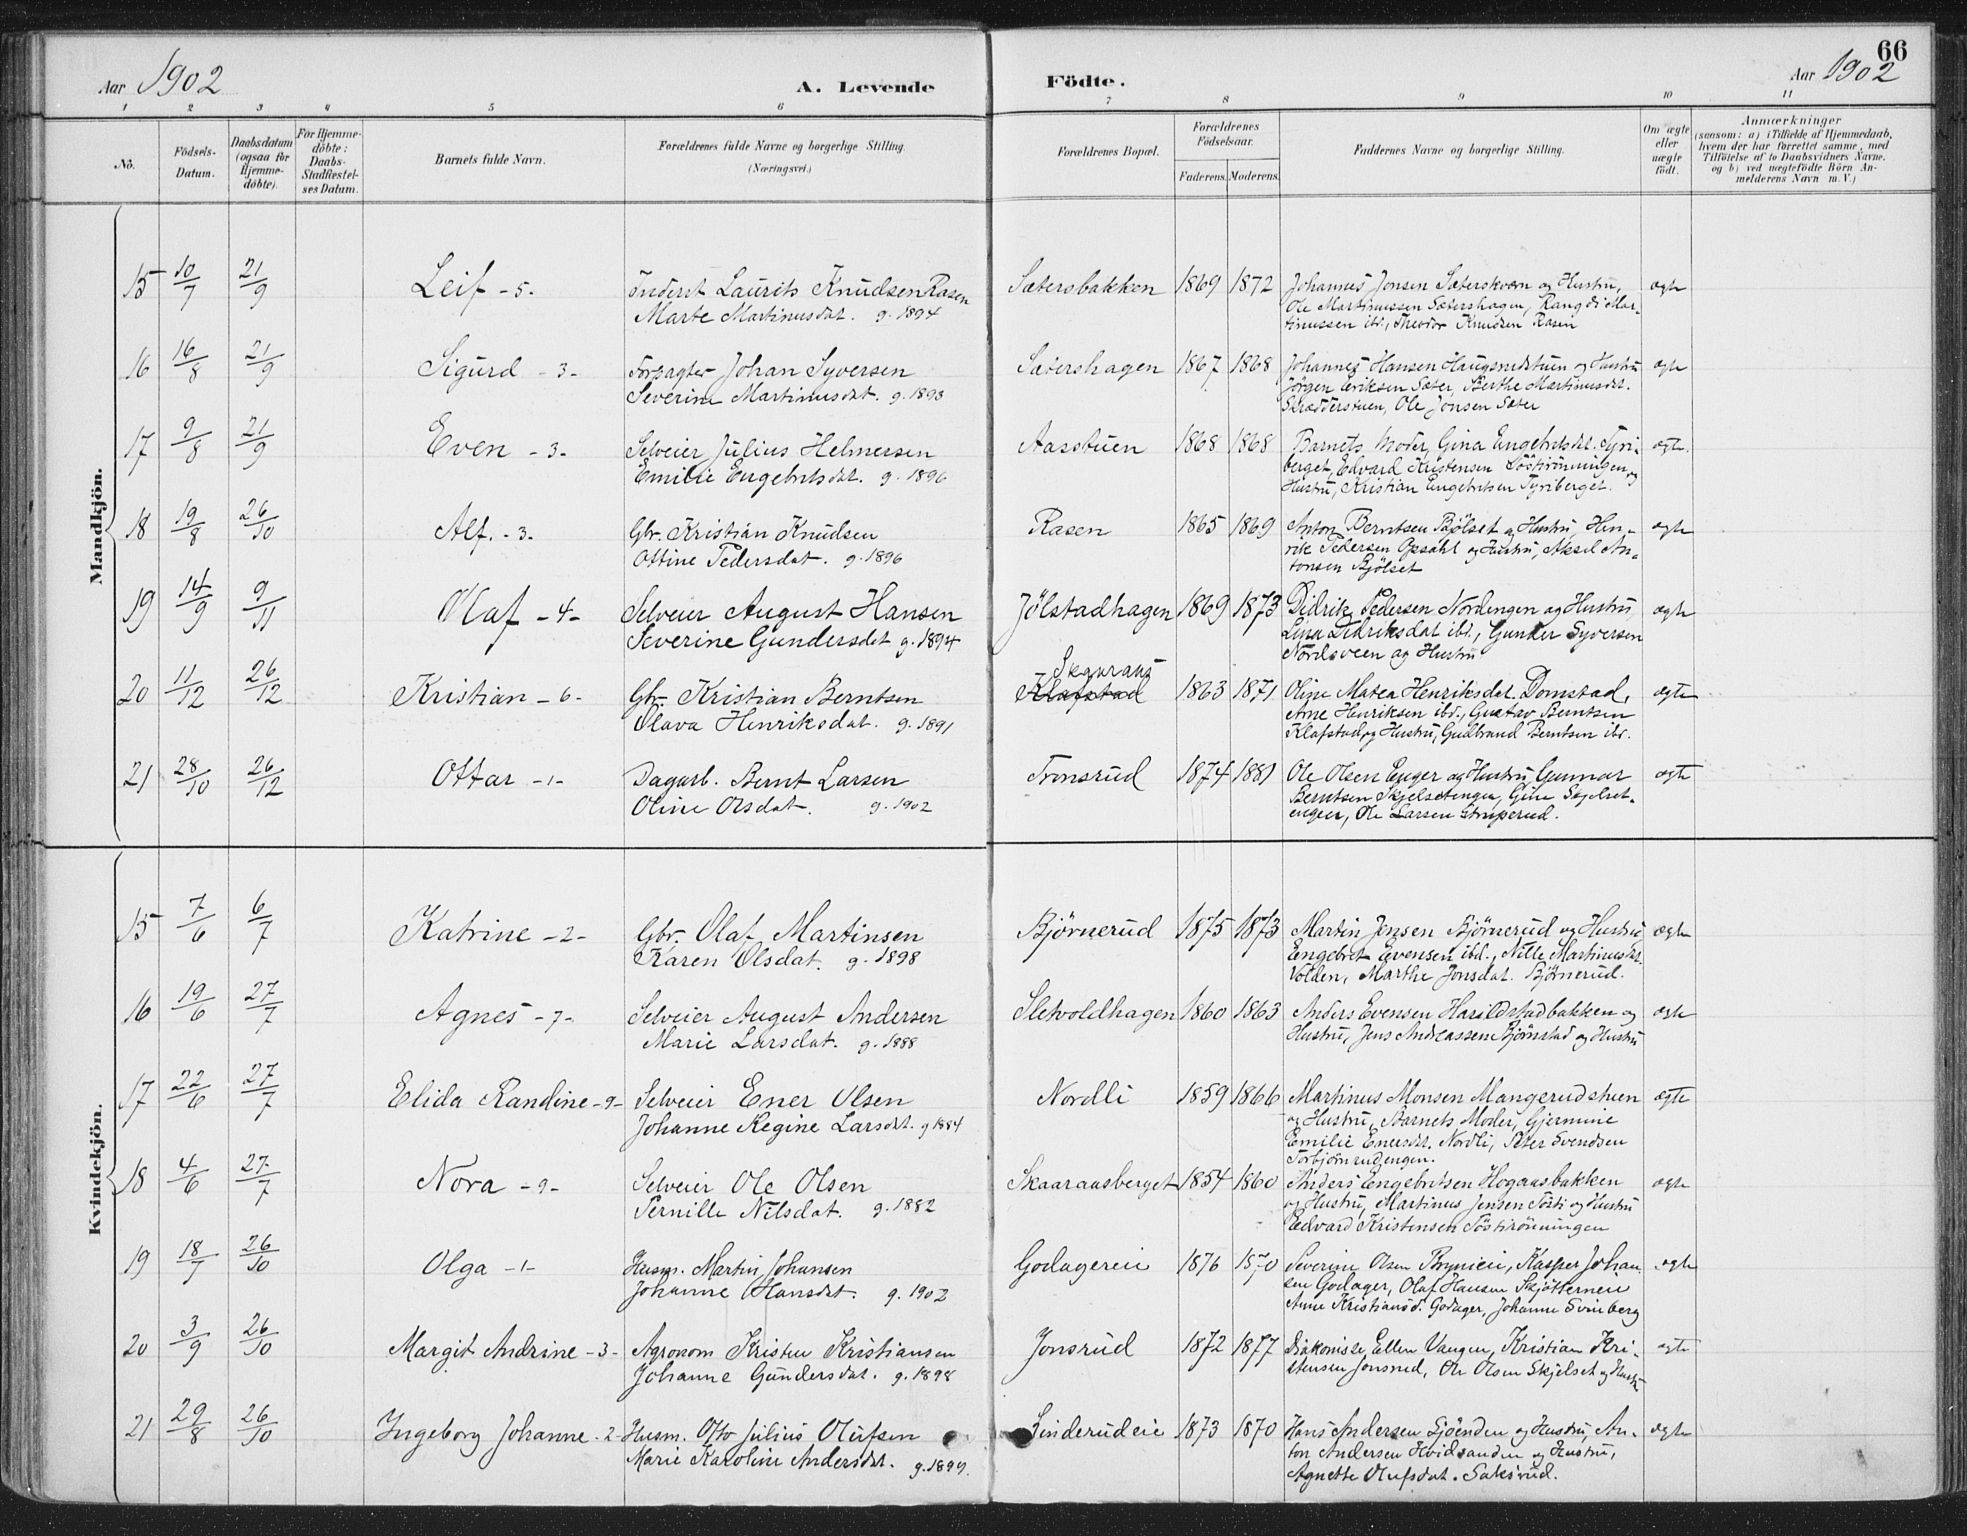 66
Aar 1902 A. Levende Födte. Aar 1902
1 2 3 4 5 6 7 8 9 10 11
No. Födsels-Datum. Daabsdatum (ogsaa for Hjemme-döbte). For Hjemme-döbte: Daabs-Stadfæstel-ses Datum. Barnets fulde Navn. Forældrenes fulde Navne og borgerlige Stilling. (Næringsvei.) Forældrenes Bopæl. Forældrenes Födselsaar. Faderens. Moderens. Faddernes Navne og borgerlige Stilling. Om ægte eller uægte födt. Anmærkninger (saasom: a) i Tilfælde af Hjemmedaab, hvem der har forrettet samme, med Tilföielse af to Daabsvidners Navne. og b) ved uægtefödte Börn An-melderens Navn m. V.)
Mandkjön.
15 10/7 21/9 Leif - 5 - Inderst Laurits Knudsen Rasen Sætersbakken 1869 1872 Johannes Jonsen Sæterskværn og Hustru, ægte
Marte Martinusdat. g. 1894 Ole Martinussen Sætershagen, Rangdi Mar-
tinussen ibd., Theodor Knudsen Rasen
16 16/8 21/9 Sigurd - 3 - Forpagter Johan Syversen Sætershagen 1867 1868 Johannes Hansen Haugsrudstuen og Hustru ægte
Severine Martinusdat. g. 1893 Jörgen Eriksen Sæter, Berthe Martinusdat.
Skrædderstuen, Ole Jonsen Sæter
17 9/8 21/9 Even - 3 - Selveier Julius Helmersen Aasstuen 1868 1868 Barnets Moder, Gina Engebretsdat. Tyri- ægte.
Emilie Engebretsdat. g. 1896 berget, Edvard Kristensen Töstirönningen og
Hustru, Kristian Engebretsen Tyriberget.
18 19/8 26/10 Alf. - 3 - Gbr. Kristian Knudsen Rasen 1865 1869 Anton Berntsen Bjölset og Hustru, Hen- ægte
Ottine Pedersdat. g. 1896 rik Pedersen Opsahl og Hustru, Aksel An-
tonsen Bjölset
19 14/9 9/11 Olaf - 4 - Selveier August Hansen Jölstadhagen 1869 1873 Didrik Pedersen Nordengen og Hustru, ægte
Severine Gundersdat g. 1894 Lina Didriksdat ibd., Gunder Syversen
Nordsveen og Hustru
Skaaraas
20 11/12 26/12 Kristian - 6 - Gbr. Kristian Berntsen Klafstad 1863 1871 Oline Matea Henriksdat. Domstad, ægte
Olava Henriksdat. g. 1891 Arne Henriksen ibd., Gustav Berntsen
Klafstad, og Hustru, Gudbrand Berntsen ibd.
21 28/10 26/12 Ottar - 1 - Dagarb. Bernt Larsen Tronsrud 1874 1881 Ole Olsen Enger og Hustru, Gunnar ægte
Oline Olsdat. g. 1902 Berntsen Skjelsetengen, Gine Skjelset-
engen, Ole Larsen Struperud.
Kvindekjön.
15 7/6 6/7 Katrine - 2 - Gbr. Olaf Martinsen Bjørnerud 1875 1873 Martin Jensen Bjørnerud og Hustru, ægte
Karen Olsdat. g. 1898 Engebret Evensen ibd., Nille Martinusdat.
Volden, Marthe Jonsdat. Bjørnerud.
16 19/6 27/7 Agnes - 7 - Selveier August Andersen Sletvoldhagen 1860 1863 Anders Evensen Haraldstadbakken og ægte
Marie Larsdat. g. 1888 Hustru, Jens Andreassen Bjørnstad og Hustru
17 22/6 27/7 Elida Randine - 9 - Selveier Ener Olsen Nordli 1859 1866 Martinus Monsen Mangerudstuen ægte
Johanne Regine Larsdat. g 1884 og Hustru, Barnets Moder, Gjermine
Emilie Enersdat. Nordli, Peter Svendsen
Torbjørnsrudengen.
18 4/6 27/7 Nora - 9 - Selveier Ole Olsen Skaaraasberget 1854 1860 Anders Engebretsen Hogaasbakken ægte
Pernille Nilsdat. g. 1882 og Hustru, Martinus Jensen Tösti og Hustru
Edvard Kristensen Töstirönningen
19 18/7 26/10 Olga - 1 - Husm. Martin Johansen Godagereie 1876 1870 Severine Olsen Brynieie, Kasper Johan- ægte
Johanne Hansdat. g. 1902 sen Godager, Olaf Hansen Skjötterneie
Anne Kristiansd. Godager, Johanne Svinberg
20 3/9 26/10 Margit Andrine - 3 - Agronom Kristen Kristiansen Jonsrud 1872 1877 Diakonisse Ellen Vangen, Kristian Kri- ægte
Johanne Gundersdat. g. 1898 stensen Jonsrud, Ole Olsen Skjelset og Hustru
21 29/8 26/10 Ingeborg Johanne - 2 - Husm. Otto Julius Olufsen Sinderudeie 1873 1870 Hans Andersen Sjöenden og Hustru, An- ægte
Marie Karoline Andersdat. g. 1899. ton Andersen Hvidsanden og Hustru,
Agnette Olufsdat. Saksrud.